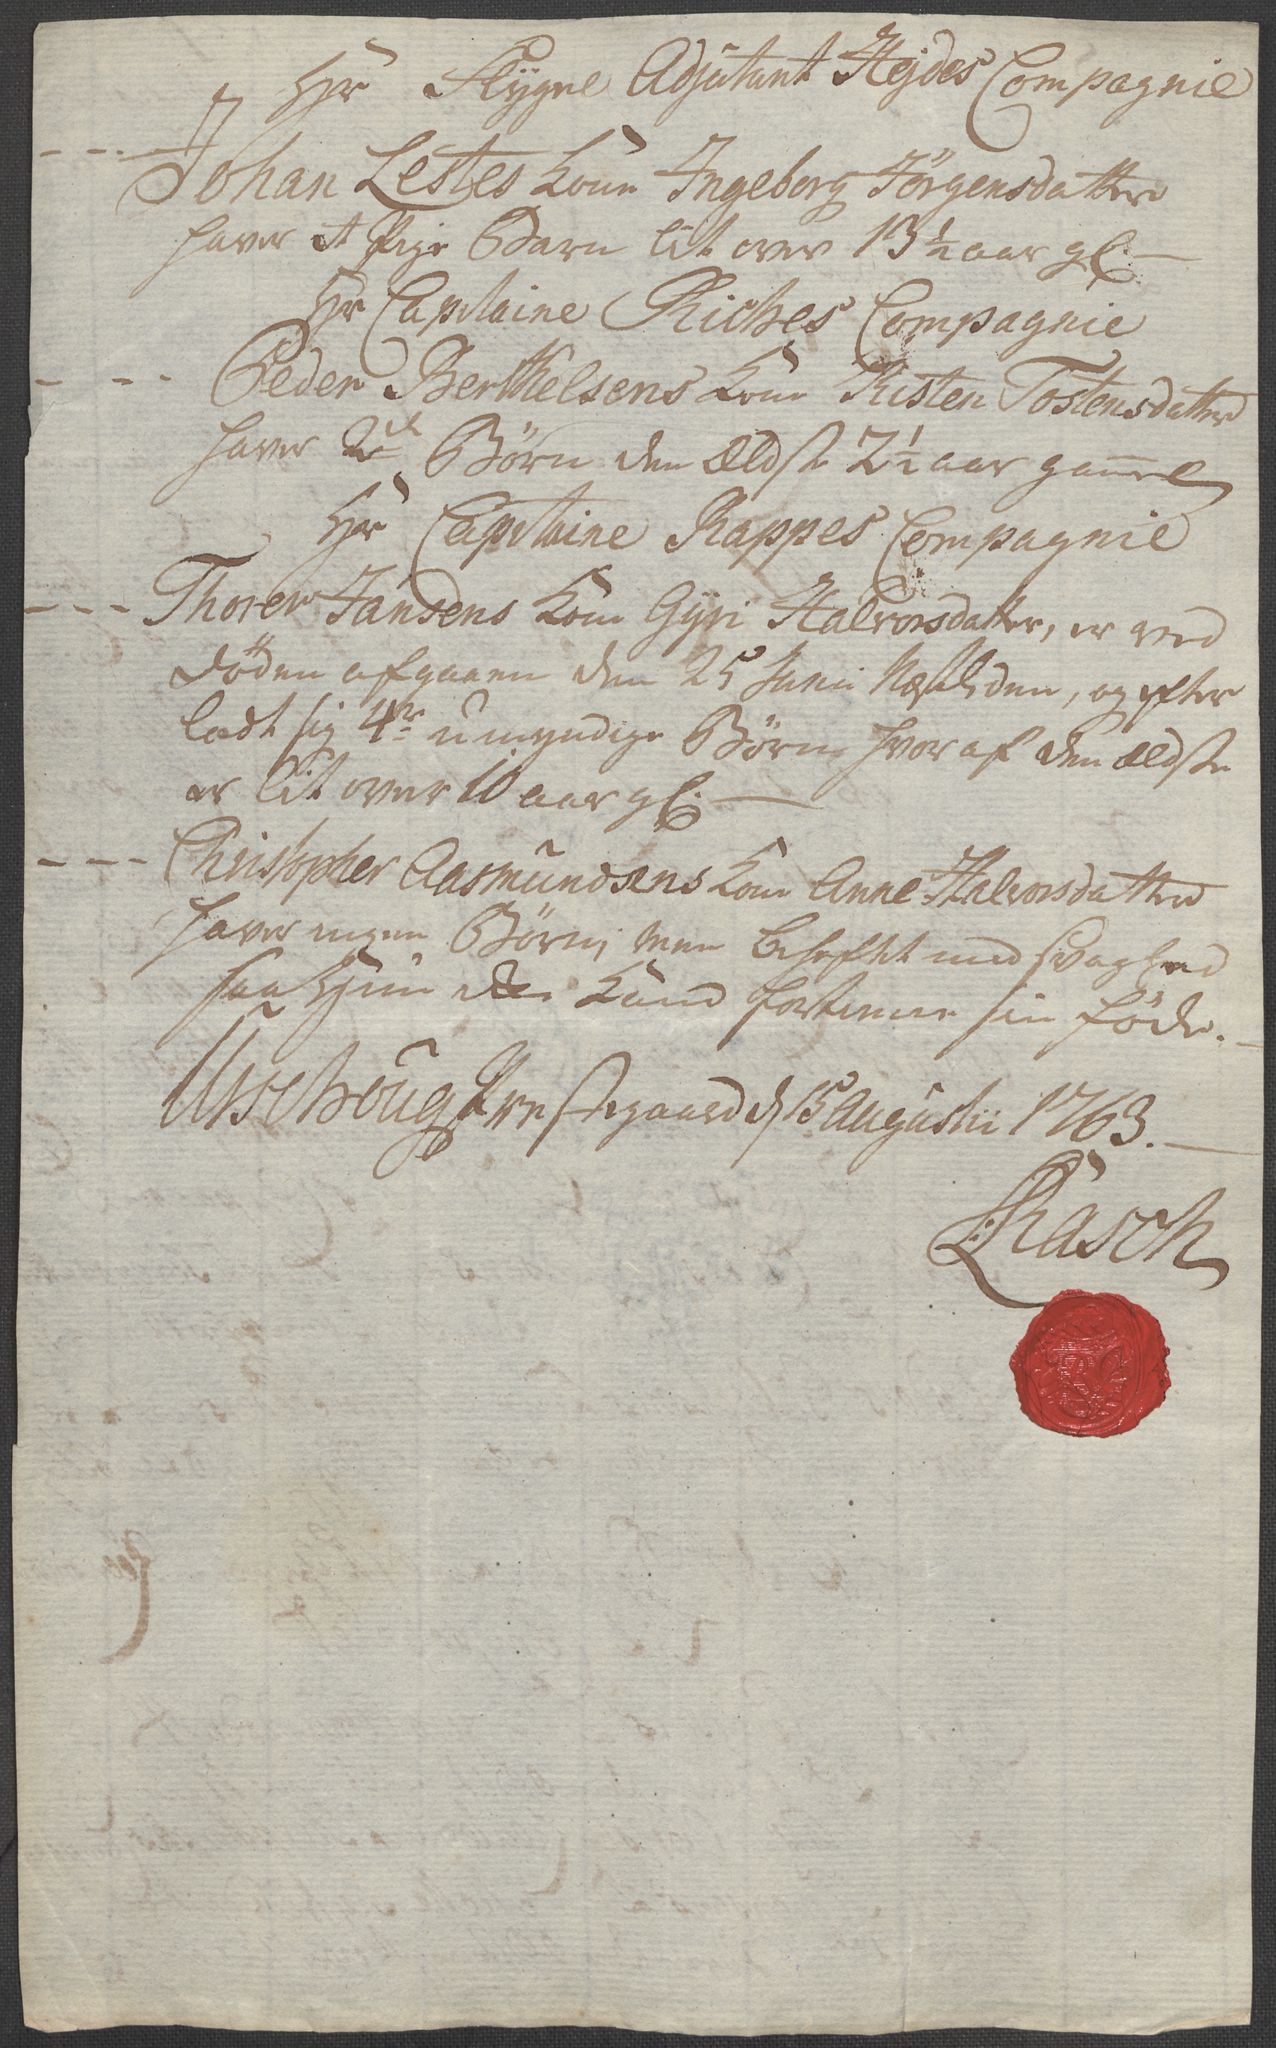 Hr Flygel Adjutant Hejdes Compagnie
--- Johan Lestes Kone Ingeborg Jörgensdatter
haver et Pige Barn lit over 13½ aar gl. —
Hr Capitaine Riches Compagnie
--- Peder Berthelsens Kone Kisten Tostensdatter
haver 2de Börn den ældste 2½ aar gammel
Hr Capitaine Rappes Compagnie
--- Thorer Jansens Kone Gyri Halvorsdatter, er ved
döden afgaaen den 25 Junii og efter
ladt sig 4re umyndige Börn hvor af den ældste
er lit over 10 aar gl. —
--- Christopher Aasmundsens Kone Anne Halvorsdatter
haver ingen Börn, men behefftet med svaghed
saa Hun Kand fortiene sin föde. —
Præstegaard d 15 Augustii 1763. —
Rasch